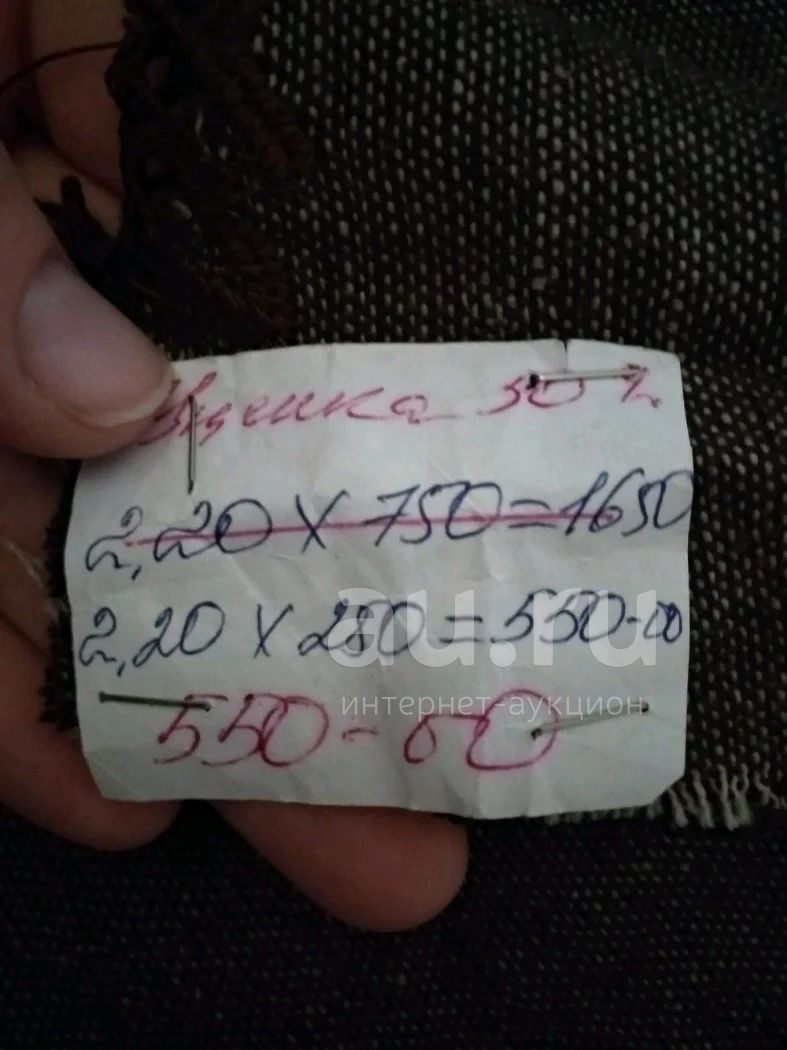 Уценка 50 %
2,20 X 750=1650
2,20 X 250=550-00
au.ru
интернет-аукцион
550-00